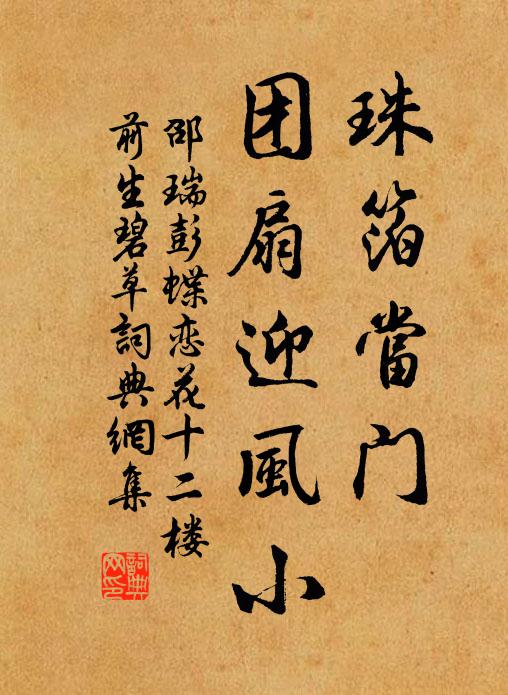 珠箔當门
团扇迎風小
邵瑞彭蝶恋花十二楼
前生碧草詞典網集
詞典网印